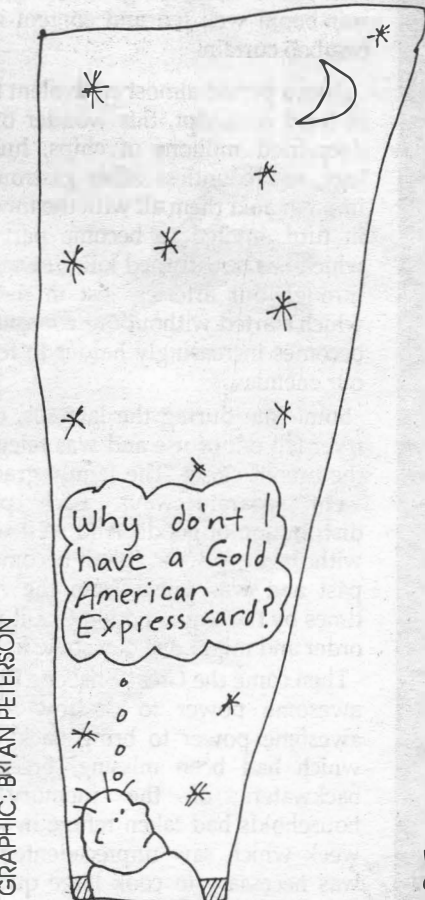 Why don't I
have a Gold
American
Express card?
GRAPHIC: BRIAN PETERSON